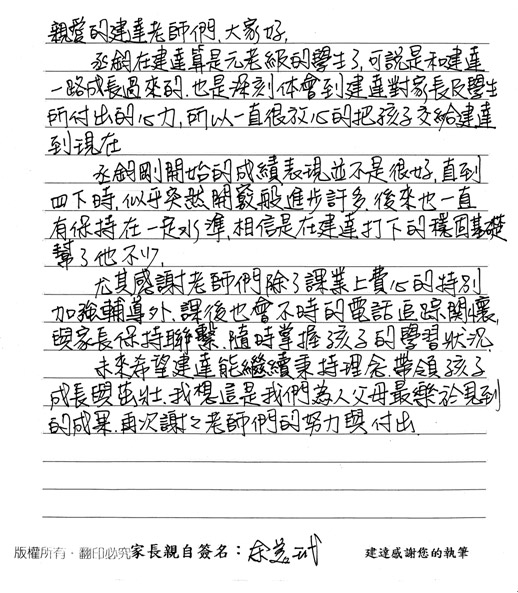 親愛的建達老師們,大家好,
丞鈞在建達算是元老級的學生了,可說是和建達
一路成長過來的.也是深刻体會到建達對家長及學生
所付出的心力,所以一直很放心的把孩子交給建達
到現在
丞鈞剛開始的成績表現並不是很好,直到
四下時,似乎突然開竅般進步許多,後來也一直
有保持在一定水準,相信是在建達打下的穩固基礎
幫了他不少,
尤其感謝老師們除了課業上費心的特別
加強輔導外.課後也會不時的電話追踪關懷,
與家長保持聯繫.隨時掌握孩子的學習狀況.
未來希望建達能繼續秉持理念.帶領孩子
成長與茁壯.我想這是我們為人父母最樂於見到
的成果.再次謝謝老師們的努力與付出.
版權所有、翻印必究 家長親自簽名: 建達感謝您的執筆